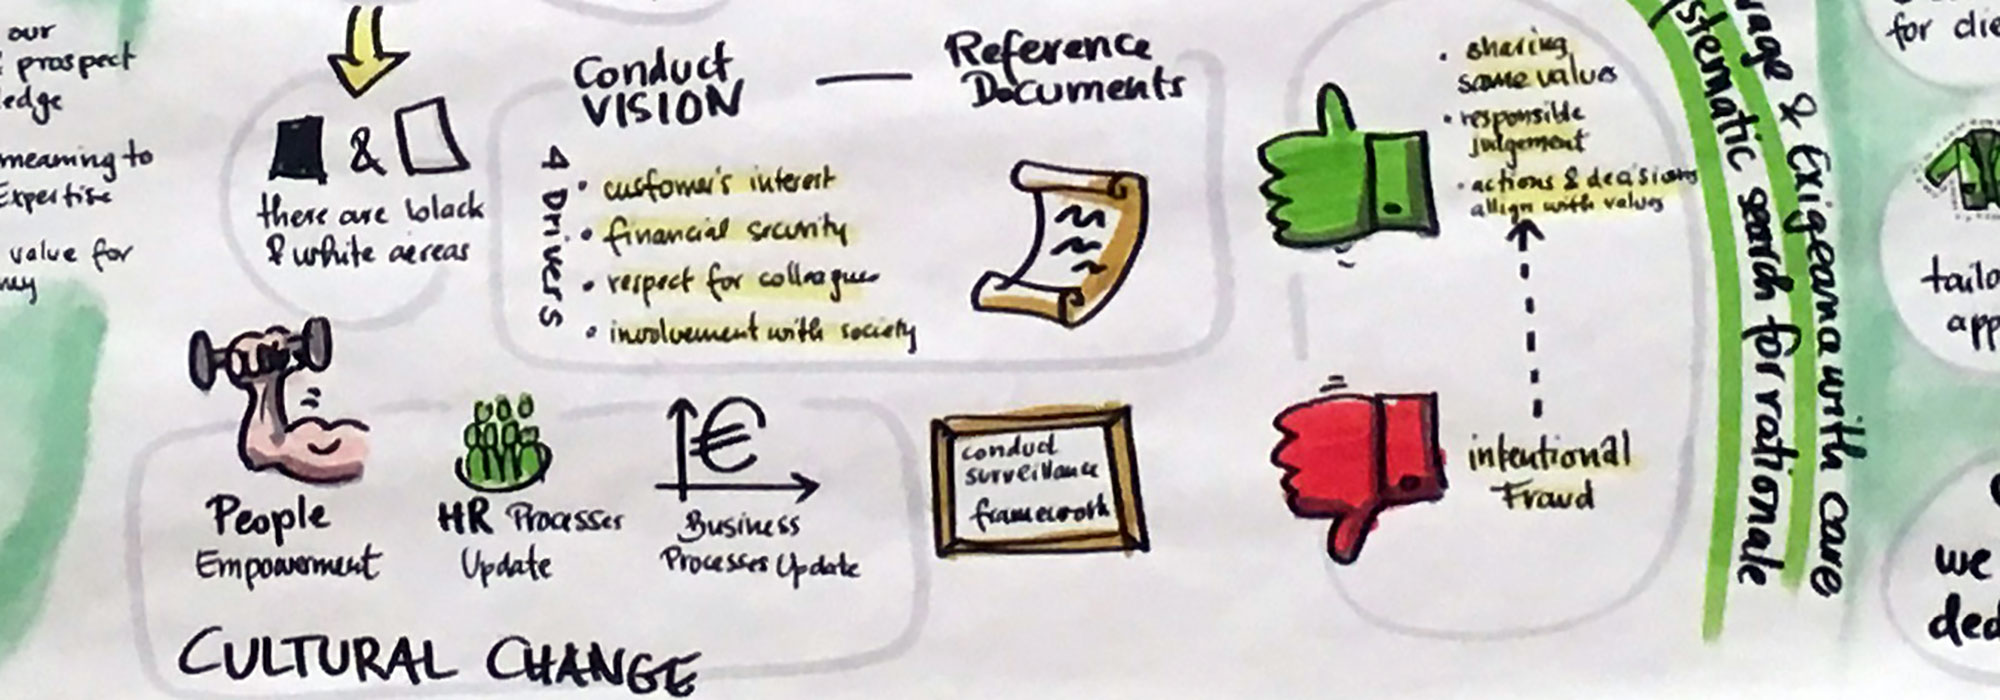 our
prospect
edge
meaning to
Expertise
value for
&
there are black
& white aereas
Conduct
VISION
Reference
Documents
4 Drivers
• customer's interest
• financial security
• respect for colleagues
• involvement with society
• sharing
same values
• responsible
judgement
• actions & decisions
allign with values
intentional
Fraud
conduct
surveillance
framework
People
Empowerment
HR Processes
Update
€
Business
Processes Update
CULTURAL CHANGE
stematic search for rationale
rage & Exigeana with care
for clie
tailo
app
we
ded